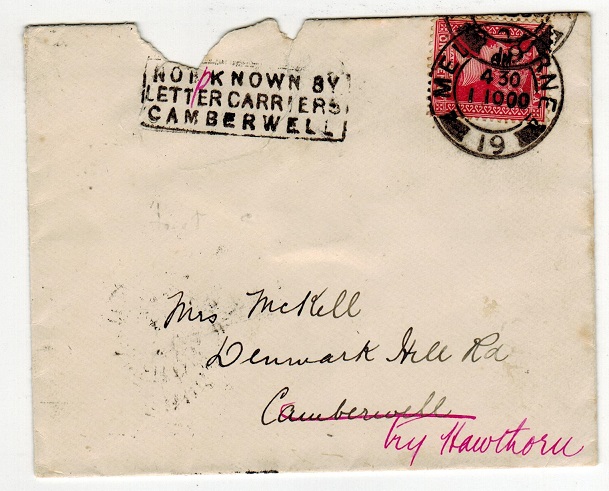 NOT KNOWN BY
LETTER CARRIERS
CAMBERWELL
MELBOURNE
4 30
1 10 00
19
Mrs McKell
Denmark Hill Rd
Camberwell
try Hawthorn